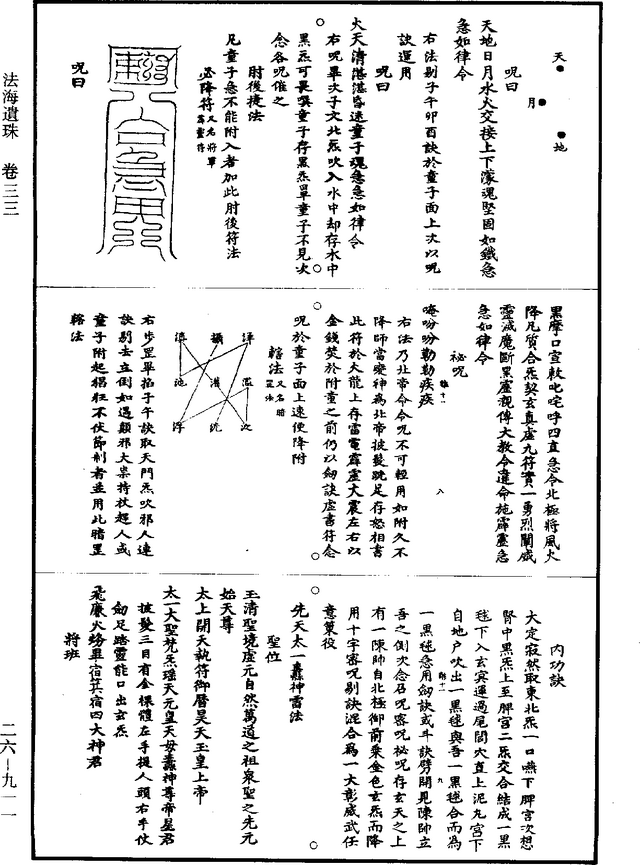 法海遺珠 卷三三
二六—九一一
天
地
月
咒曰
天地日月水火交接上下濛魂堅固如鐵急
急如律令
右法剔子午卯酉訣於童子面上次以咒
訣運用
咒曰
火天清湛湛昏迷童子魂急急如律令
右咒畢次子文北炁吹入水中却存水中
黑炁可畏噀童子存黑炁罩童子不見次
念各咒催之
肘後捷法
凡童子急不能附入者加此肘後符法
必降符又名將軍霹靂符
咒曰
黑摩口宣敕叱咤呼四直急令北極將風火
降凡質合炁契玄真虛九符實一勇烈闡威
靈滅魔斷黑虛視傳大教令違命施霹靂急
急如律令
祕咒
唵吩吩勒勒疾疾
右法乃北帝命令咒不可輕用如附久不
降師當變神為北帝披髮跣足存怒相書
此符於火龍上存雷電霹靂大震左右以
金錢焚於附童之前仍以劍訣虛書符念
咒於童子面上速使降附
轄法又名暗罡法
右步罡畢掐子午訣取天門炁吹邪人連
訣剔去立倒如遇顛邪大祟持杖趕人或
童子附起猖狂不伏節制者並用此暗罡
轄法
內功訣
大定寂然取東北炁一口嚥下脾宮次想
腎中黑炁上至脾宮二炁交合結成一黑
毬下入玄冥運過尾閭穴直上泥丸宮下
自地户吹出一黑毬與吾一黑毬合而為
一黑毬急用劍訣或斗訣劈開見陳帥立
吾之側次念召咒密咒祕咒存玄天之上
有一陳帥自北極御前乘金色玄炁而降
用十字密咒剔訣混合為一大彰威武任
意策役
先天太一轟神雷法
聖位
玉清聖境虛元自然萬道之祖眾聖之先元
始天尊
太上開天執符御曆昊天玉皇上帝
太一大聖梵炁瑶天元皇天母轟神尊帝星君
披髮三目有金裸體左手提人頭右手仗
劍足踏靈能口出玄炁
將班
飛廉火鴉畢宿箕宿四大神君